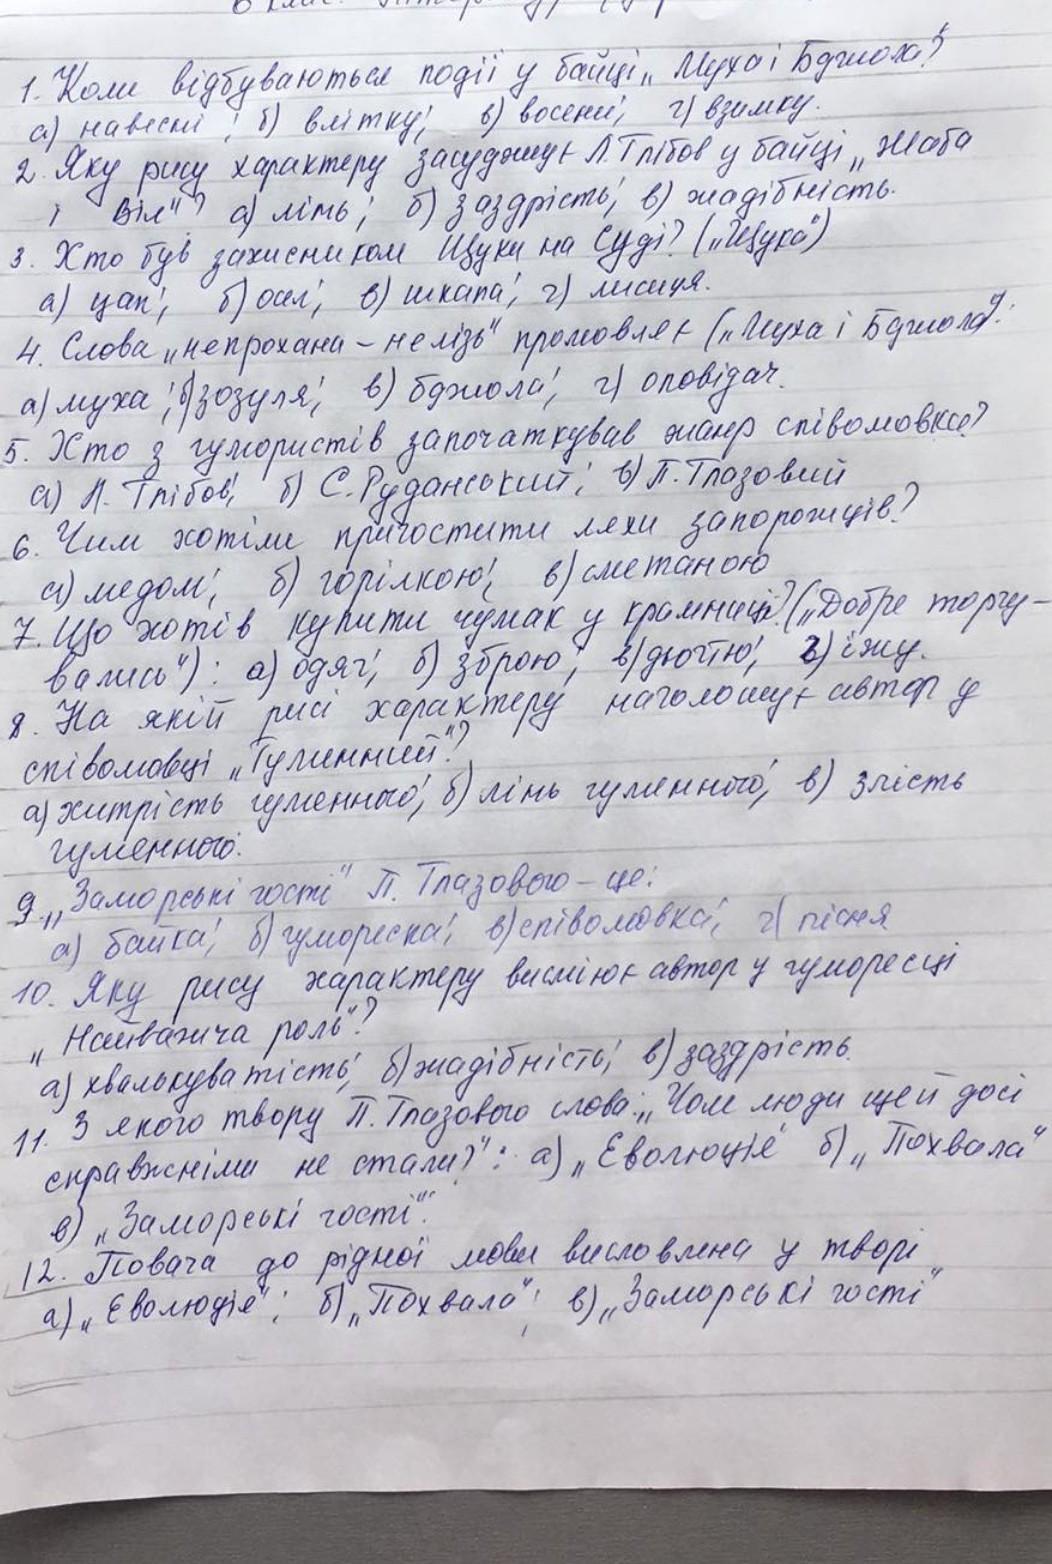 6 клас.
1. Коли відбуваються події у байці „Муха і Бджола"?
а) навесні; б) влітку; в) восени; г) взимку.
2. Яку рису характеру засуджує Л. Глібов у байці „Жаба
і Віл"? а) лінь; б) заздрість; в) жадібність.
3. Хто був захисником Щуки на суді? („Щука")
а) цап; б) осел; в) шкапа; г) лисиця.
4. Слова „непрохана – не лізь" промовляє („Муха і Бджола"):
а) муха; б) зозуля; в) бджола; г) оповідач.
5. Хто з гумористів започаткував жанр співомовки?
а) Л. Глібов; б) С. Руданський; в) П. Глазовий
6. Чим хотіли пригостити ляхи запорожців?
а) медом; б) горілкою; в) сметаною
7. Що хотів купити чумак у крамниці? („Добре торгу-
вались"): а) одяг; б) зброю; в) дьогтю; г) їжу.
8. На якій рисі характеру наголошує автор у
співомовці „Гуменний"?
а) хитрість гуменного; б) лінь гуменного; в) злість
гуменного.
9. „Заморські гості" П. Глазового – це:
а) байка; б) гумореска; в) співомовка; г) пісня
10. Яку рису характеру висміює автор у гуморесці
„Найважча роль"?
а) хвалькуватість; б) жадібність; в) заздрість.
11. З якого твору П. Глазового слова: „Чом люди ще й досі
справжніми не стали?": а) „Еволюція" б) „Похвала"
в) „Заморські гості".
12. Повага до рідної мови висловлена у творі
а) „Еволюція"; б) „Похвала"; в) „Заморські гості"